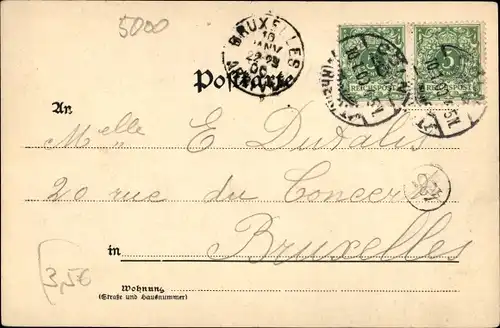 5000
BRUXELLES
10
JANV
00
Postkarte
REICHSPOST REICHSPOST
An
Melle E Dutalis
20 rue du Concert
in Bruxelles
3,50
Wohnung
(Straße und Hausnummer)